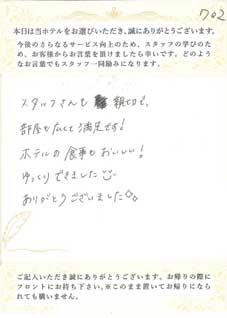 702
本日は当ホテルをお選びいただき、誠にありがとうございます。
今後のさらなるサービス向上のため、スタッフの学びのため、お客様からお言葉を頂けましたら幸いです。どのようなお言葉でもスタッフ一同励みになります。
スタッフさんも 親切で、
部屋も広くて満足です!
ホテルの食事もおいしい!
ゆっくりできました
ありがとうございました
ご記入いただき誠にありがとうございます。お帰りの際にフロントにお持ち下さい。※このまま置いてお帰りになられても構いません。